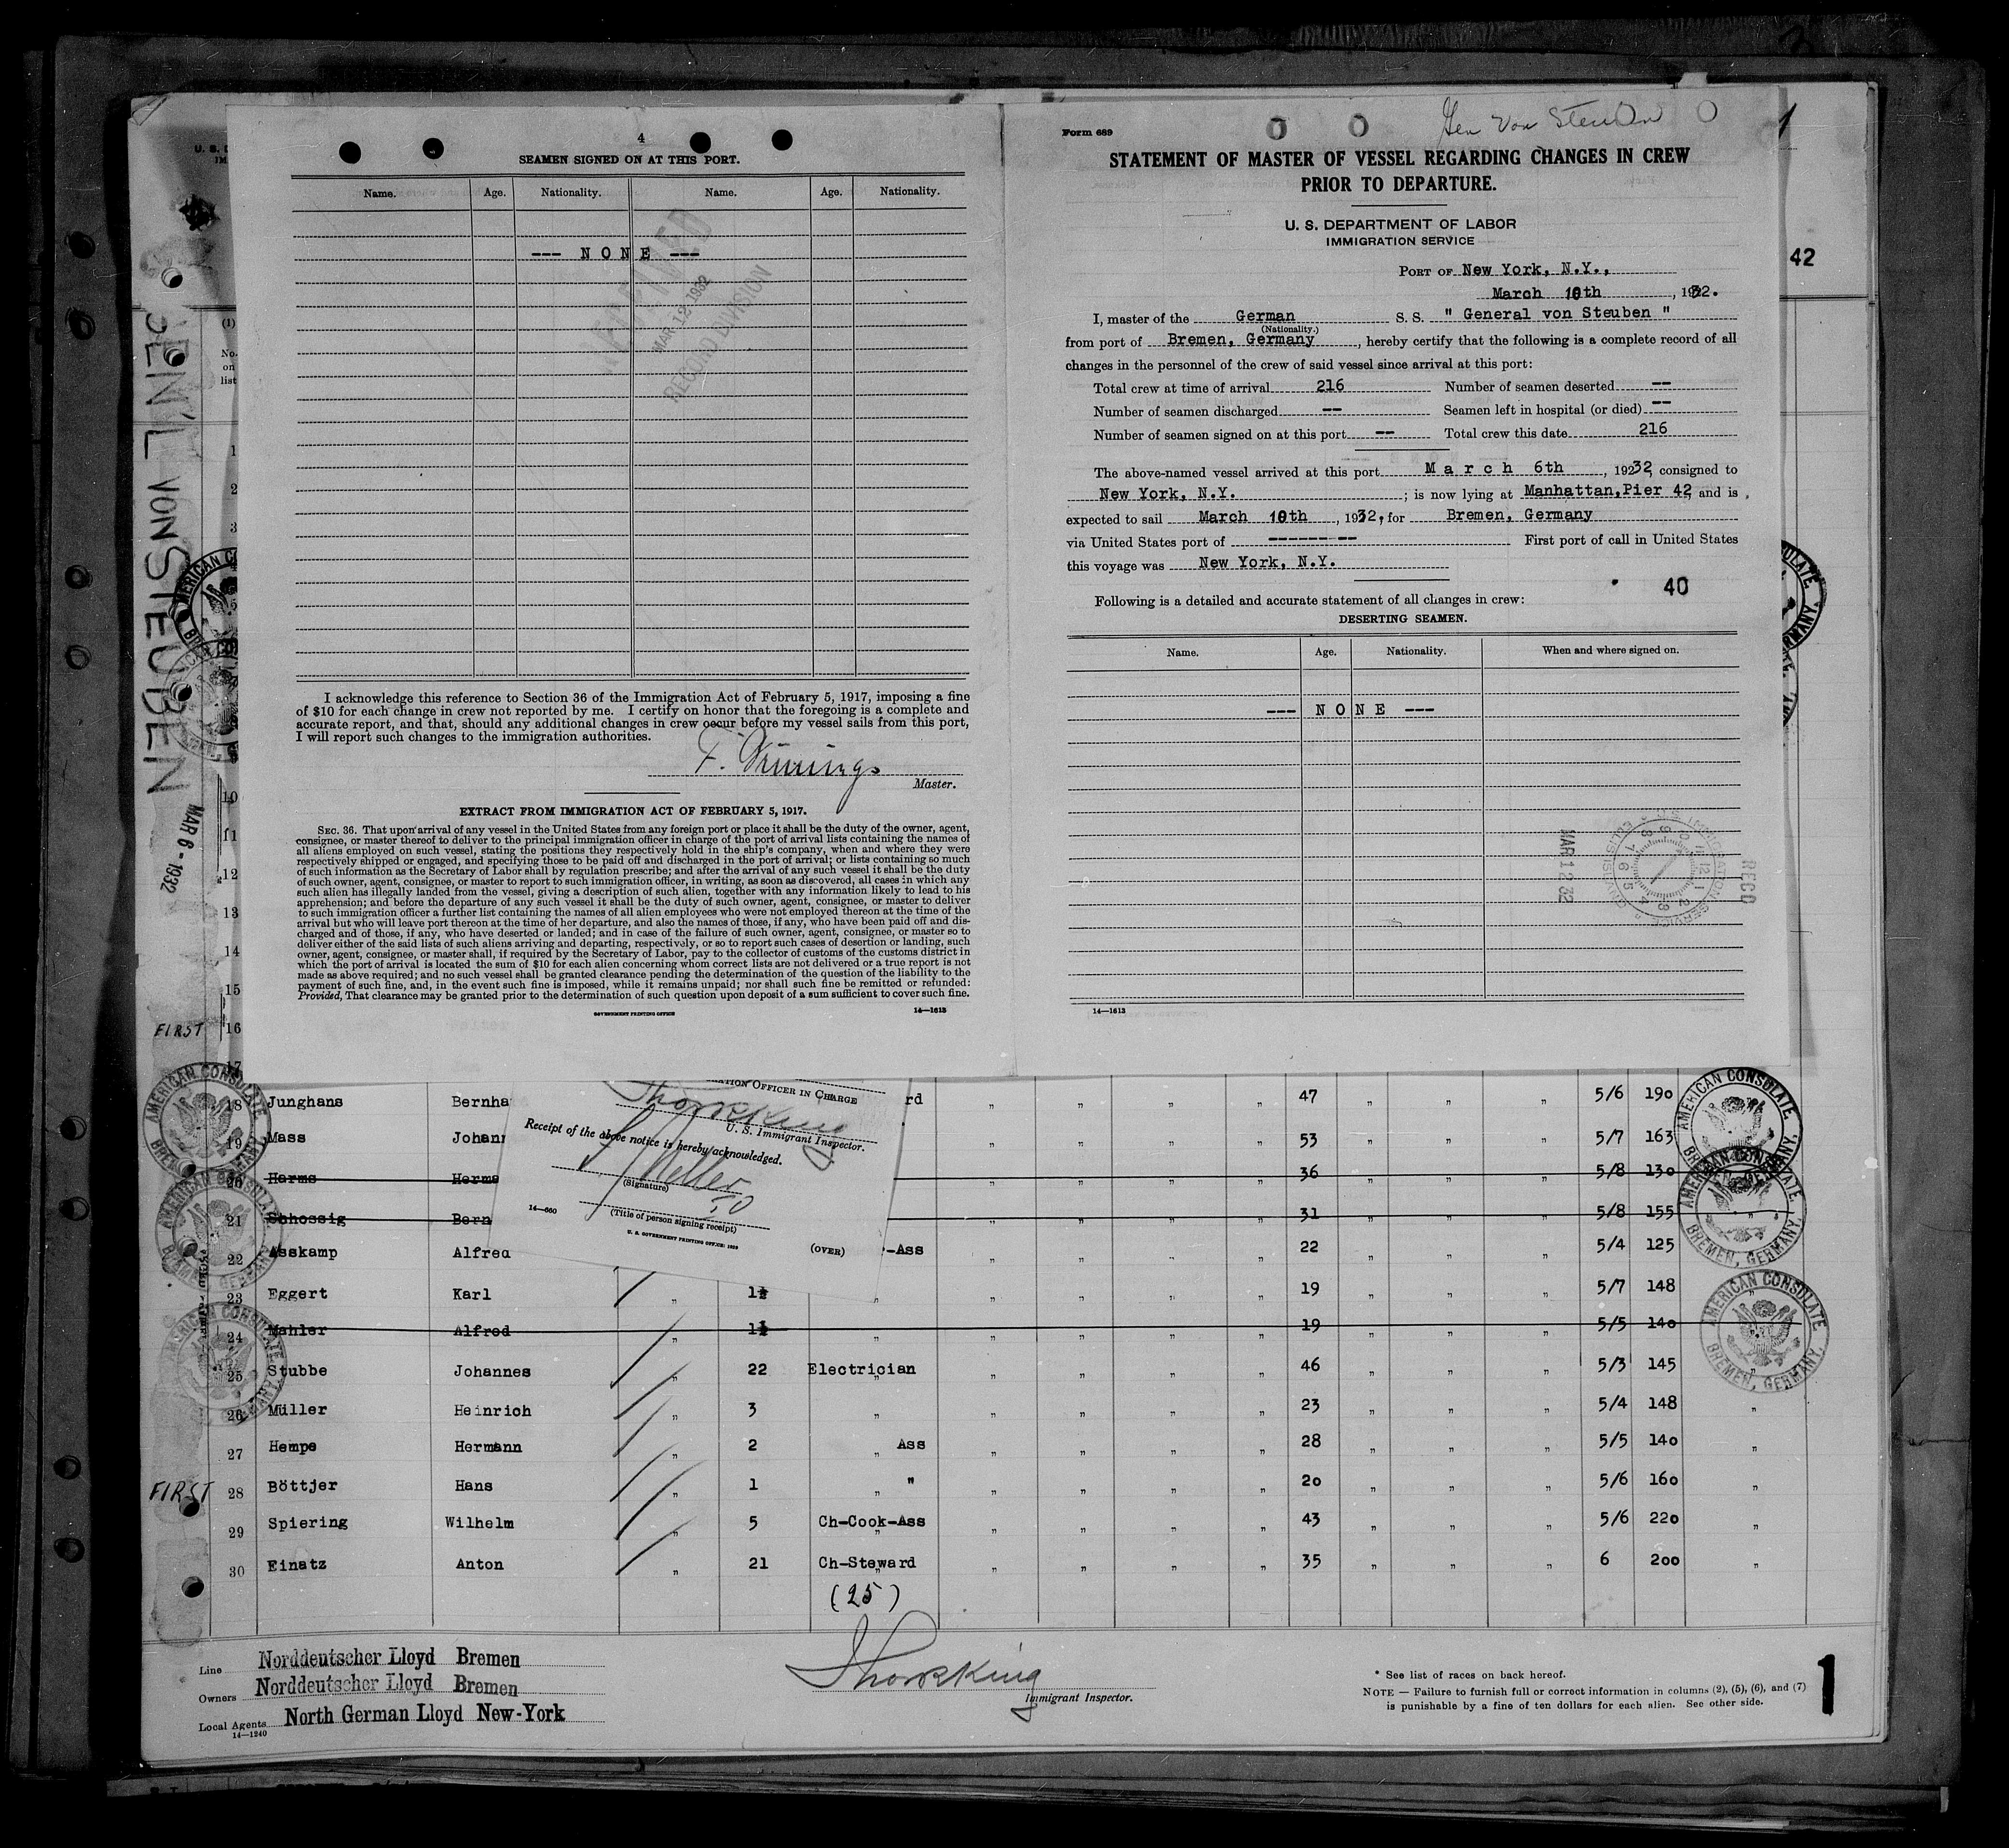 4
SEAMEN SIGNED ON AT THIS PORT.
Name. Age. Nationality. Name. Age. Nationality.
--- N O N E ---
MAR 12 1932
RECORD DIVISION
I acknowledge this reference to Section 36 of the Immigration Act of February 5, 1917, imposing a fine
of $10 for each change in crew not reported by me. I certify on honor that the foregoing is a complete and
accurate report, and that, should any additional changes in crew occur before my vessel sails from this port,
I will report such changes to the immigration authorities.
Master.
EXTRACT FROM IMMIGRATION ACT OF FEBRUARY 5, 1917.
SEC. 36. That upon arrival of any vessel in the United States from any foreign port or place it shall be the duty of the owner, agent,
consignee, or master thereof to deliver to the principal immigration officer in charge of the port of arrival lists containing the names of
all aliens employed on such vessel, stating the positions they respectively hold in the ship's company, when and where they were
respectively shipped or engaged, and specifying those to be paid off and discharged in the port of arrival; or lists containing so much
of such information as the Secretary of Labor shall by regulation prescribe; and after the arrival of any such vessel it shall be the duty
of such owner, agent, consignee, or master to report to such immigration officer, in writing, as soon as discovered, all cases in which any
such alien has illegally landed from the vessel, giving a description of such alien, together with any information likely to lead to his
apprehension; and before the departure of any such vessel it shall be the duty of such owner, agent, consignee, or master to deliver
to such immigration officer a further list containing the names of all alien employees who were not employed thereon at the time of the
arrival but who will leave port thereon at the time of her departure, and also the names of those, if any, who have been paid off and dis-
charged and of those, if any, who have deserted or landed; and in case of the failure of such owner, agent, consignee, or master so to
deliver either of the said lists of such aliens arriving and departing, respectively, or so to report such cases of desertion or landing, such
owner, agent, consignee, or master shall, if required by the Secretary of Labor, pay to the collector of customs of the customs district in
which the port of arrival is located the sum of $10 for each alien concerning whom correct lists are not delivered or a true report is not
made as above required; and no such vessel shall be granted clearance pending the determination of the question of the liability to the
payment of such fine, and, in the event such fine is imposed, while it remains unpaid; nor shall such fine be remitted or refunded:
Provided, That clearance may be granted prior to the determination of such question upon deposit of a sum sufficient to cover such fine.
GOVERNMENT PRINTING OFFICE 14—1613
Gen Von Steuben
Form 689
STATEMENT OF MASTER OF VESSEL REGARDING CHANGES IN CREW
PRIOR TO DEPARTURE.
U. S. DEPARTMENT OF LABOR
IMMIGRATION SERVICE
PORT OF New York, N.Y.,
March 10th, 1932.
I, master of the German S. S. " General von Steuben "
(Nationality.)
from port of Bremen, Germany, hereby certify that the following is a complete record of all
changes in the personnel of the crew of said vessel since arrival at this port:
Total crew at time of arrival 216 Number of seamen deserted --
Number of seamen discharged -- Seamen left in hospital (or died) --
Number of seamen signed on at this port -- Total crew this date 216
The above-named vessel arrived at this port March 6th, 19232, consigned to
New York, N.Y.; is now lying at Manhattan,Pier 42 and is
expected to sail March 10th, 1932, for Bremen, Germany
via United States port of -------- First port of call in United States
this voyage was New York, N.Y.
40
Following is a detailed and accurate statement of all changes in crew:
DESERTING SEAMEN.
Name. Age. Nationality. When and where signed on.
--- N O N E ---
MAR 12 32
REC'D
14—1613
42
GEN'L VON STEUBEN
MAR 6 - 1932
(1)
No.
on
list
1
2
3
10
11
12
13
14
15
FIRST 16
17
OFFICER IN CHARGE
U. S. Immigrant Inspector.
Receipt of the above notice is hereby acknowledged.
(Signature)
14—660 (Title of person signing receipt)
(OVER)
AMERICAN CONSULATE
BREMEN, GERMANY.
18 Junghans Bernha rd " " " " 47 " " " 5/6 190
19 Mass Johann " " " " 53 " " " 5/7 163
20 Harms Herma " " " " 36 " " " 5/8 130
21 Schossig Bern " " " " 31 " " " 5/8 155 "
22 Asskamp Alfred -Ass " " " " 22 " " " 5/4 125
23 Eggert Karl " 1½ " " " " " 19 " " " 5/7 148 "
24 Mahler Alfred " 1½ " " " " " 19 " " " 5/5 140
25 Stubbe Johannes " 22 Electrician " " " " 46 " " " 5/3 145 "
26 Müller Heinrich " 3 " " " " " 23 " " " 5/4 148 "
27 Hempe Hermann " 2 " Ass " " " " 28 " " " 5/5 140 "
FIRST 28 Böttjer Hans " 1 " " " " " " 20 " " " 5/6 160 "
29 Spiering Wilhelm " 5 Ch-Cook-Ass " " " " 43 " " " 5/6 220 "
30 Einatz Anton " 21 Ch-Steward " " " " 35 " " " 6 200 "
(25)
Line Norddeutscher Lloyd Bremen
Owners Norddeutscher Lloyd Bremen
Local Agents North German Lloyd New-York
14—1240
Immigrant Inspector.
* See list of races on back hereof.
NOTE — Failure to furnish full or correct information in columns (2), (5), (6), and (7)
is punishable by a fine of ten dollars for each alien. See other side.
1